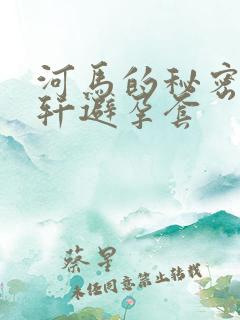 河马的秘密
轩避孕套
蔡星
未经同意禁止转载